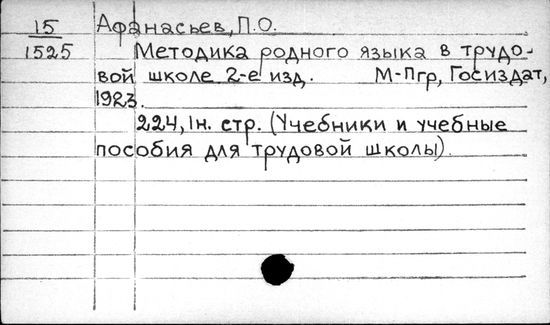 15
1525
Афанасьев, П.О.
Методика родного языка в трудо-
вой школе 2-е изд. М-Пгр, Госиздат,
1923.
224, 1н. стр. (Учебники и учебные
пособия для трудовой школы).